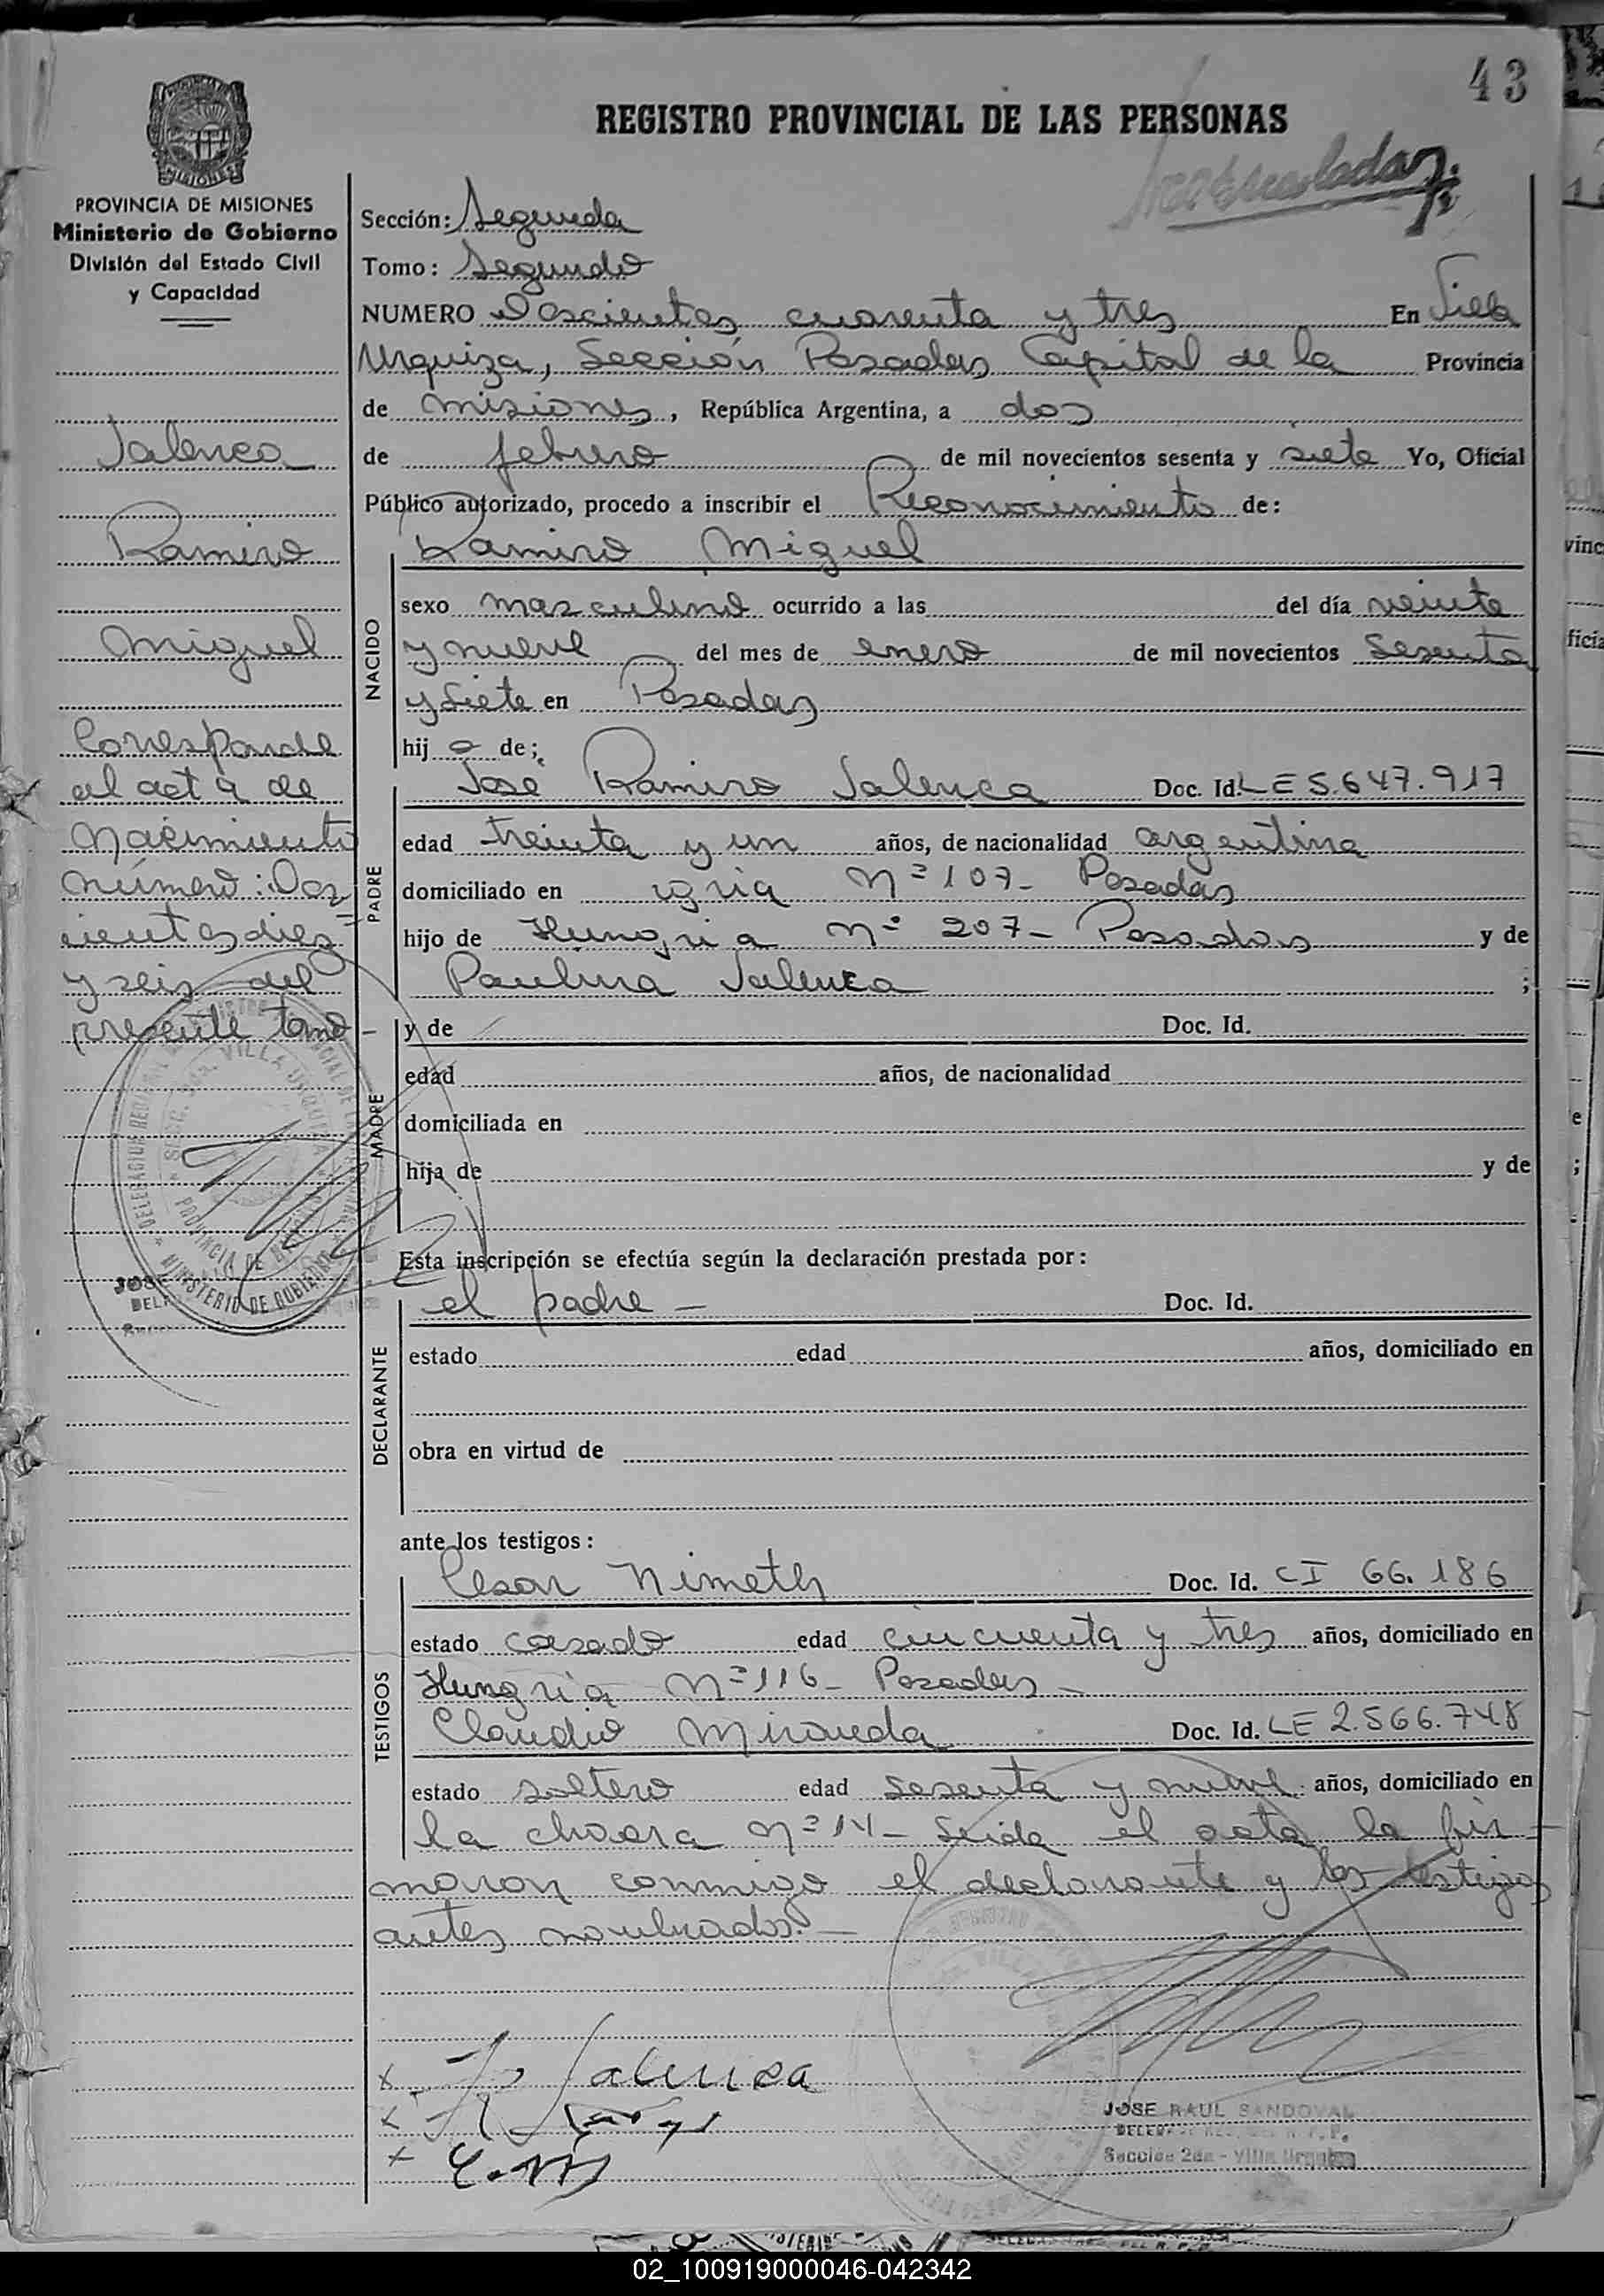 43
REGISTRO PROVINCIAL DE LAS PERSONAS
PROVINCIA DE MISIONES
Ministerio de Gobierno
División del Estado Civil
y Capacidad
Jalenca
Ramiro
Miguel
Corresponde
al acta de
Nacimiento
número: Dos
cientos diez
y seis del
presente tomo
Sección: Segunda
Tomo: Segundo
NUMERO Doscientos cuarenta y tres En Villa
Urquiza, Sección Posadas Capital de la Provincia
de Misiones, República Argentina, a dos
de febrero de mil novecientos sesenta y siete Yo, Oficial
Público autorizado, procedo a inscribir el Reconocimiento de:
Ramiro Miguel
NACIDO
sexo masculino ocurrido a las del día veinte
y nueve del mes de enero de mil novecientos sesenta
y siete en Posadas
hij o de;
José Ramiro Jalenca Doc. Id. LE 5.647.917
PADRE
edad treinta y un años, de nacionalidad argentina
domiciliado en Nº 107- Posadas
hijo de Hungria Nº 207- Posadas y de
Paulina Jalenca ;
MADRE
y de Doc. Id.
edad años, de nacionalidad
domiciliada en
hija de y de
Esta inscripción se efectúa según la declaración prestada por:
el padre - Doc. Id.
DECLARANTE
estado edad años, domiciliado en
obra en virtud de
ante los testigos:
Cesar Nimeth Doc. Id. CI 66.186
TESTIGOS
estado casado edad cincuenta y tres años, domiciliado en
Hungria Nº 116- Posadas-
Claudio Miranda Doc. Id. LE 2.566.748
estado soltero edad sesenta y nueve años, domiciliado en
la chacra Nº 14- Leida el acta la fir-
maron conmigo el declarante y los testigos
antes nombrados.-
x Jalenca
x
x C.M
JOSE RAUL SANDOVAL
Sección 2da - Villa Urquiza
VILLA URQUIZA
PROVINCIA DE MISIONES
MINISTERIO DE GOBIERNO
02_100919000046-042342